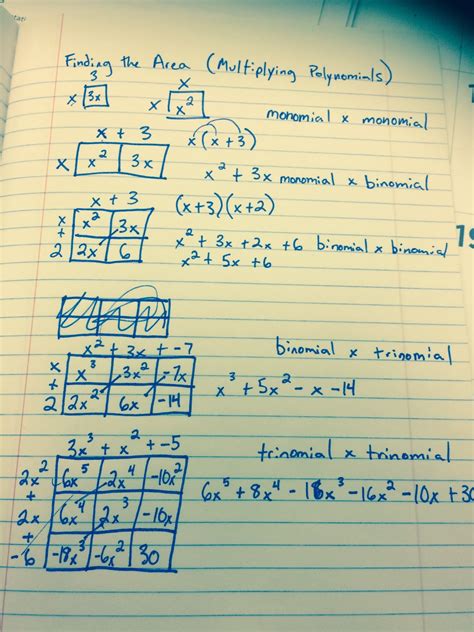 Finding the Area (Multiplying Polynomials)
3
x 3x
x
x x²
monomial x monomial
x + 3
x x² 3x
x(x+3)
x² + 3x monomial x binomial
x + 3
x x² 3x
+
2 2x 6
(x+3)(x+2)
x² + 3x + 2x + 6 binomial x binomial
x² + 5x + 6
x² + 3x + -7
x x³ 3x² -7x
+
2 2x² 6x -14
binomial x trinomial
x³ + 5x² - x - 14
3x³ + x² + -5
2x² 6x⁵ 2x⁴ -10x²
+
2x 6x⁴ 2x³ -10x
+
-6 -18x³ -6x² 30
trinomial x trinomial
6x⁵ + 8x⁴ - 16x³ - 16x² - 10x + 30